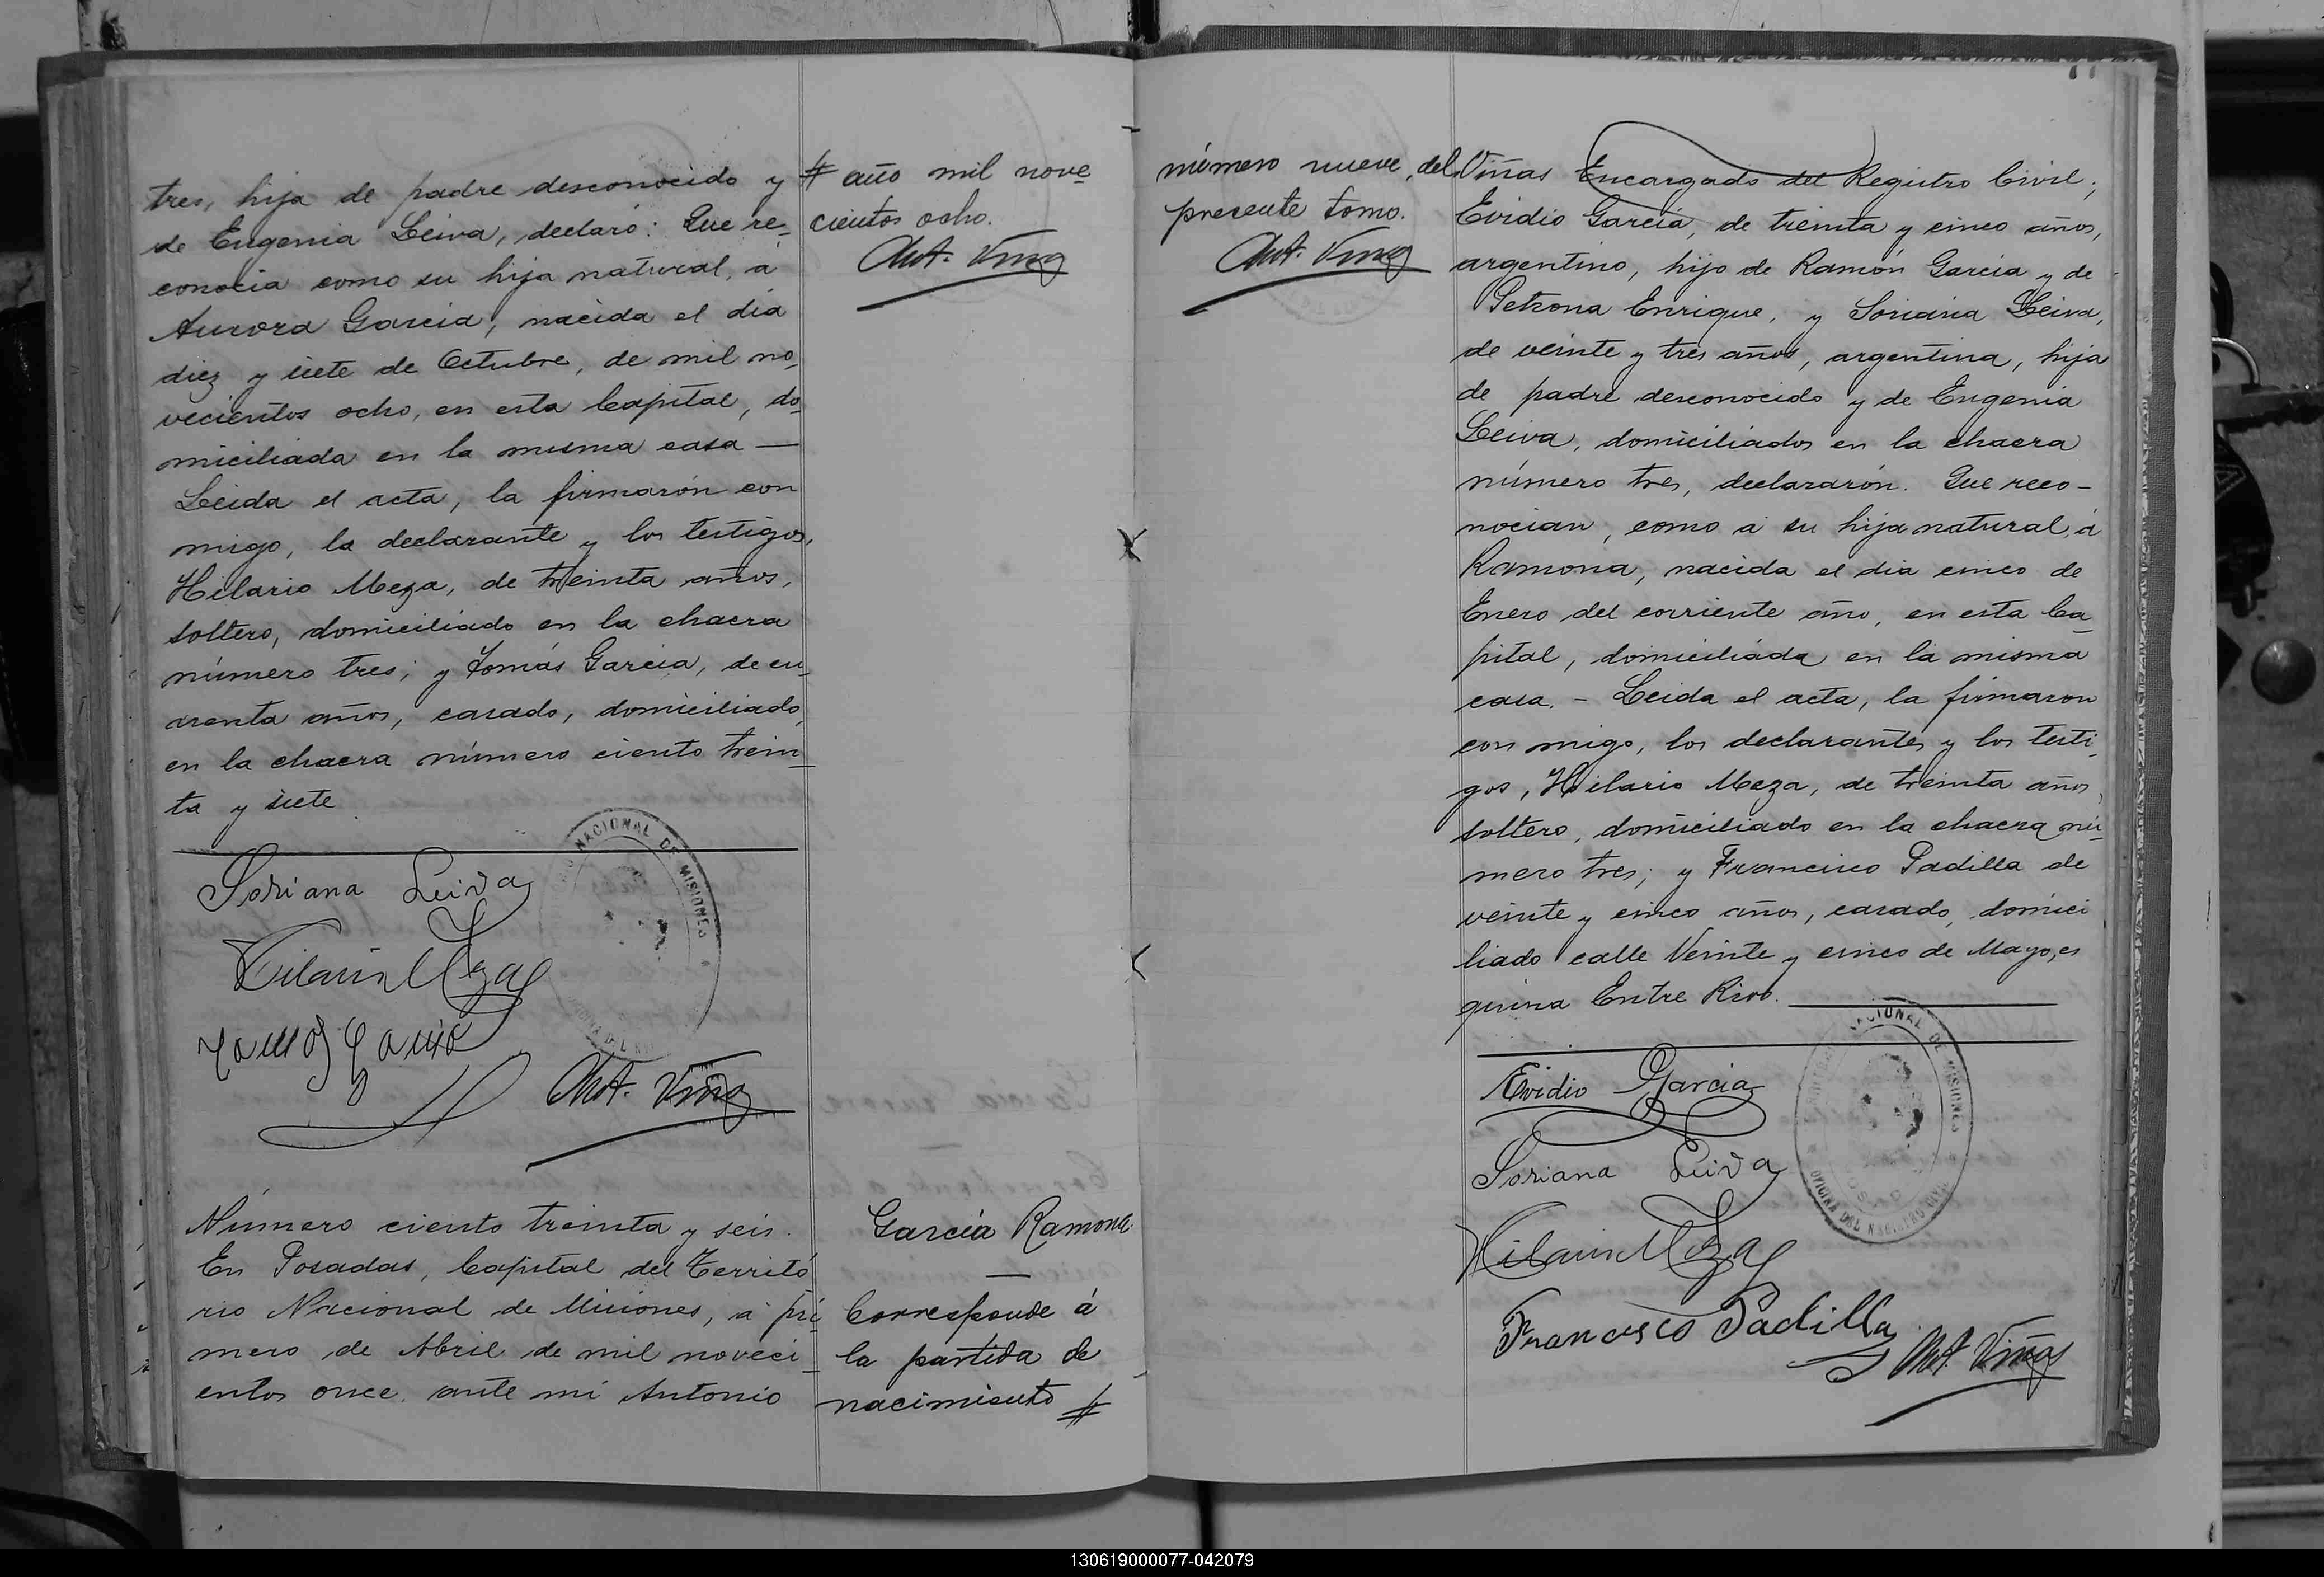 tres, hija de padre desconocido y
de Eugenia Leiva, declaró: Que re-
conocia como su hija natural, á
Aurora Garcia, nacida el dia
diez y siete de Octubre, de mil no-
vecientos ocho, en esta Capital, do-
miciliada en la misma casa —
Leida el acta, la firmarón con
migo, la declarante y los testigos,
Hilario Meza, de treinta años,
soltero, domiciliado en la chacra
número tres; y Tomás Garcia, de cu-
arenta años, casado, domiciliado
en la chacra número ciento trein-
ta y siete
NACIONAL DE MISIONES
Soriana Leiva
Hilario Meza
Tomas Garcia
Ant. Viñas
# año mil nove-
cientos ocho.
Ant. Viñas
Número ciento treinta y seis.
En Posadas, Capital del Territó
rio Nacional de Misiones, á pri-
mero de Abril de mil noveci-
entos once. ante mi Antonio
García Ramona
—
Corresponde á
la partida de
nacimiento #
número nueve, del
presente tomo.
Ant. Viñas
Viñas Encargado del Registro Civil;
Evidio García, de treinta y cinco años,
argentino, hijo de Ramón Garcia y de
Petrona Enrique, y Soriana Leiva,
de veinte y tres años, argentina, hija
de padre desconocido y de Eugenia
Leiva, domiciliados en la chacra
número tres, declararón. Que reco-
nocian, como á su hija natural, á
Ramona, nacida el dia cinco de
Enero del corriente año, en esta Ca-
pital, domiciliáda en la misma
casa. - Leida el acta, la firmaron
con migo, los declarantes y los testi-
gos, Hilario Meza, de treinta años,
soltero, domiciliado en la chacra nú-
mero tres; y Francisco Padilla de
veinte y cinco años, casado, domici
liado calle Veinte y cinco de Mayo, es
quina Entre Rios.
NACIONAL DE MISIONES
OFICINA DEL REGISTRO CIVIL
Evidio Garcia
Soriana Leiva
Hilario Meza
Francisco Padilla
Ant. Viñas
130619000077-042079